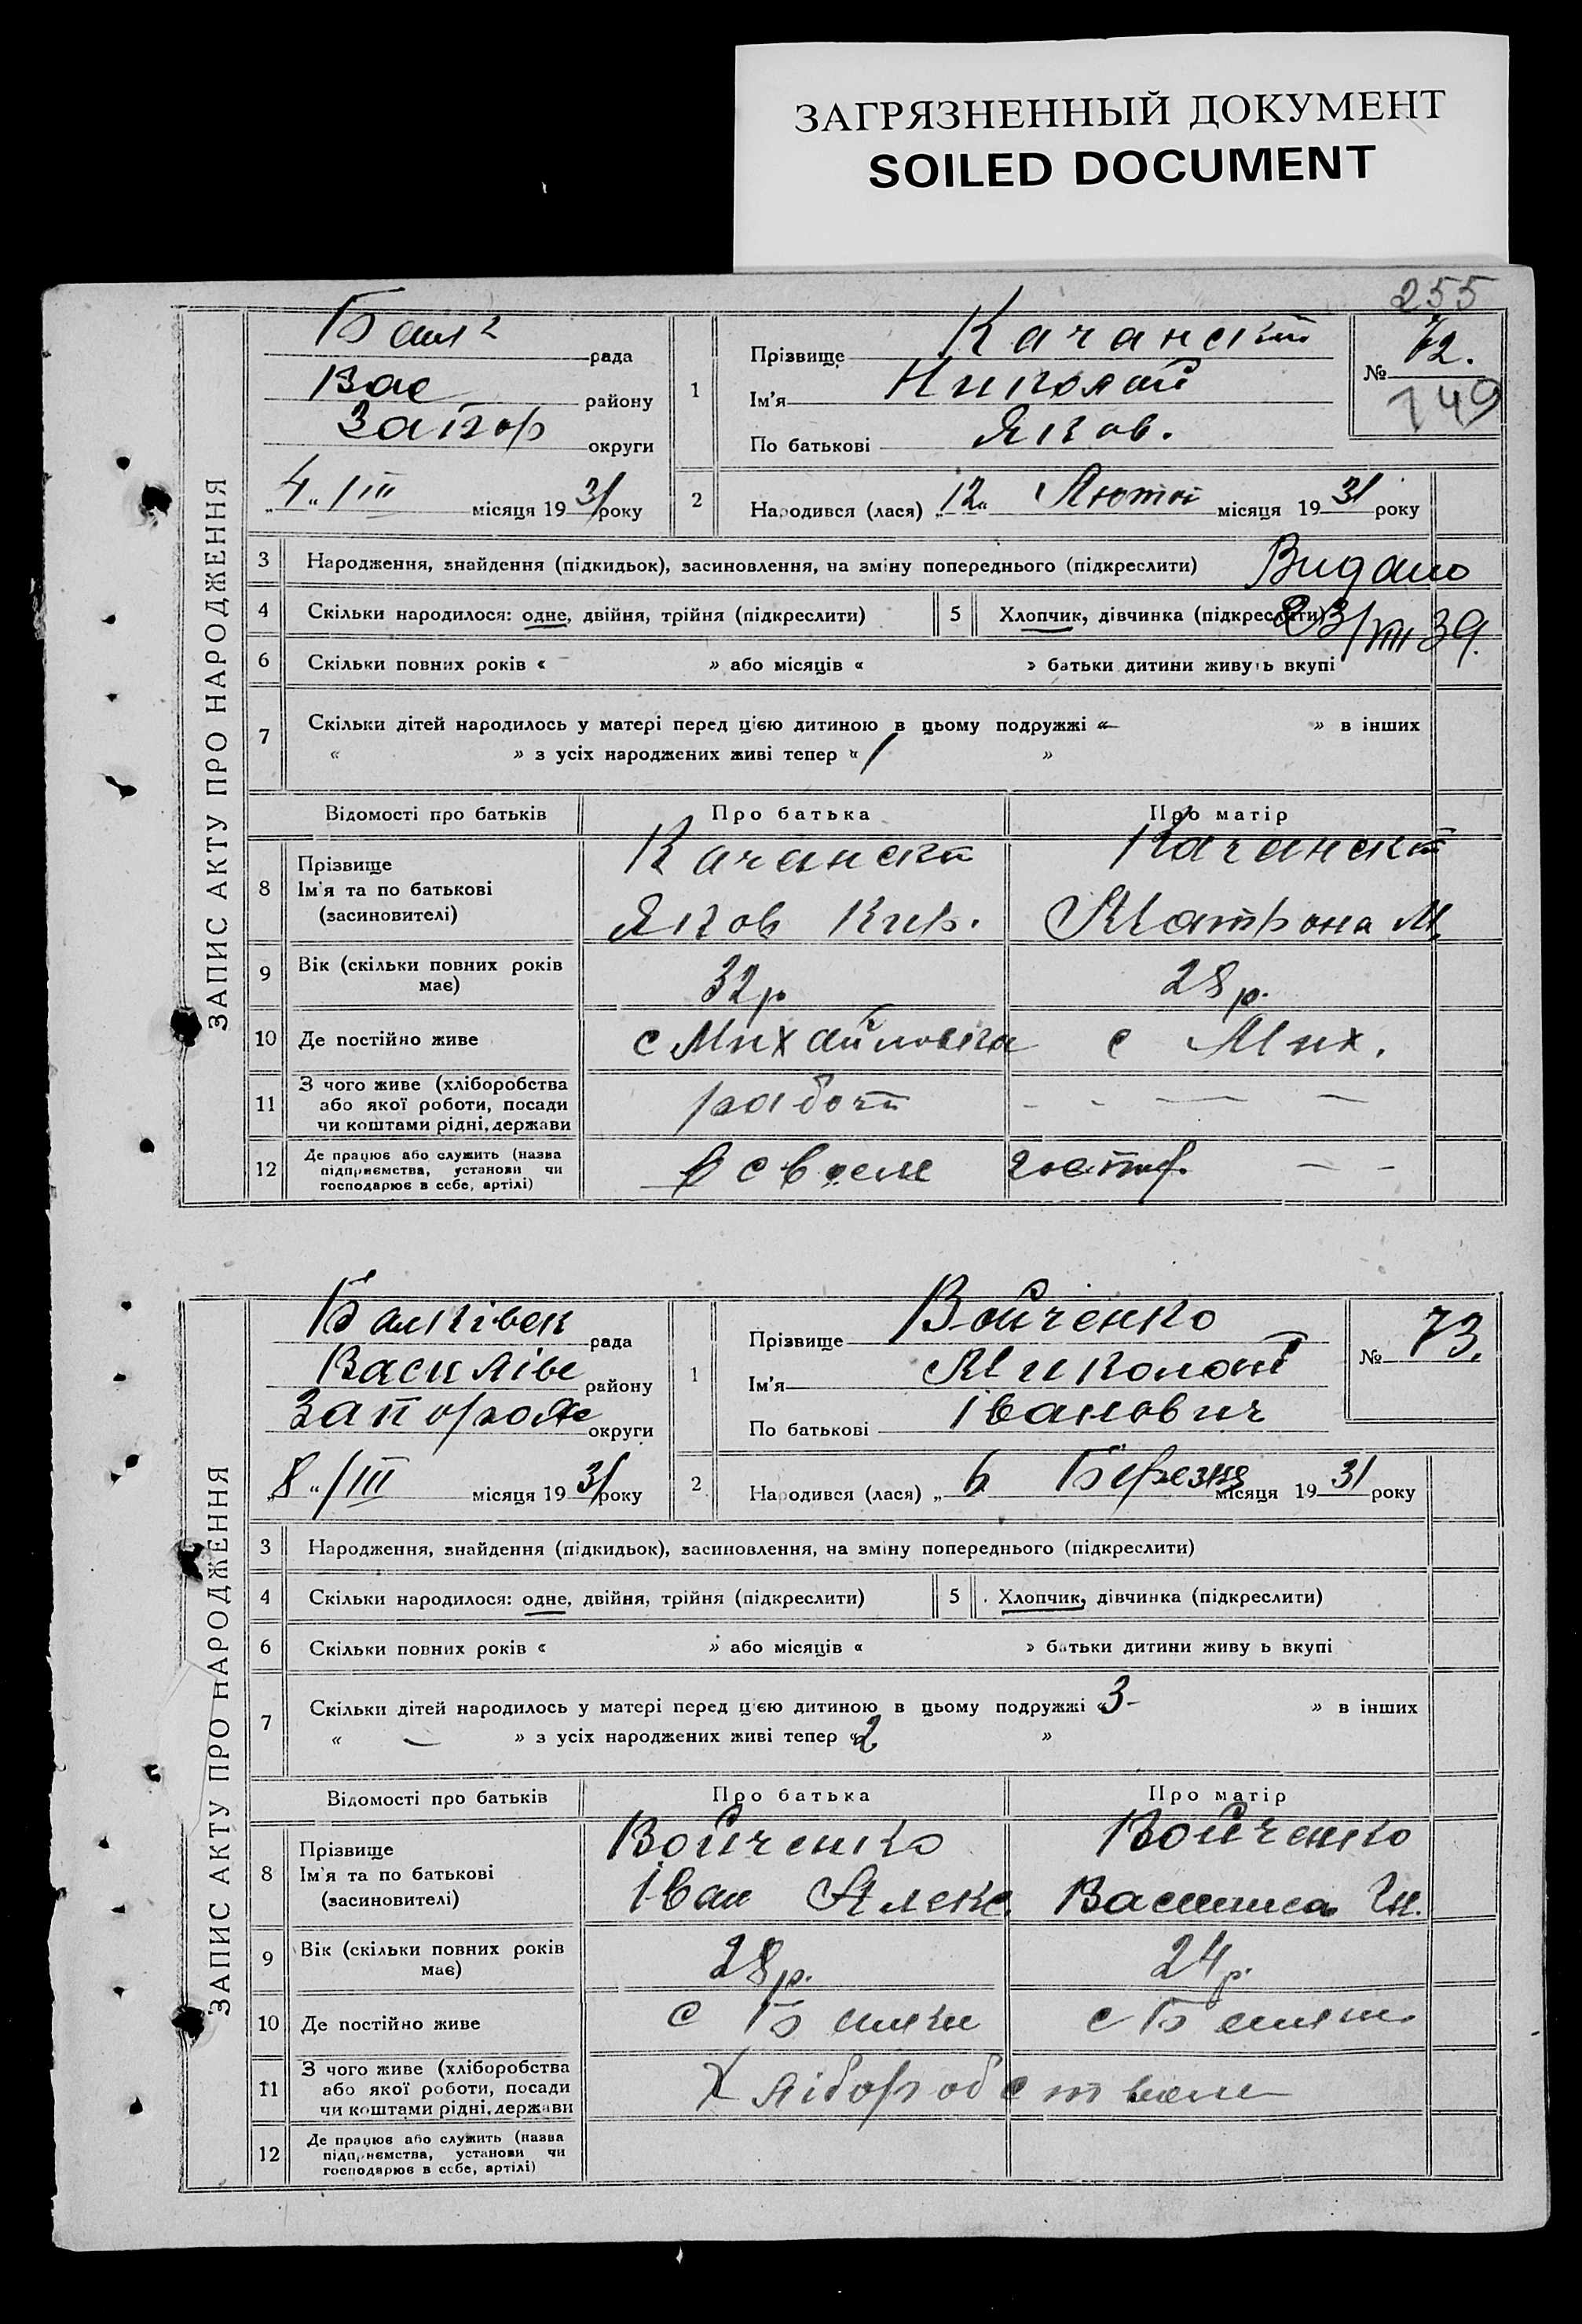 ЗАГРЯЗНЕННЫЙ ДОКУМЕНТ
SOILED DOCUMENT
255
ЗАПИС АКТУ ПРО НАРОДЖЕННЯ
Балк рада
Вас району
Запор округи
„4“ /III місяця 1931 року
1
Прізвище Качанский
Ім'я Николай
По батькові Яков.
№ 72.
149
2
Народився (лася) „12“ Лютий місяця 1931 року
3 Народження, знайдення (підкидьок), засиновлення, на зміну попереднього (підкреслити)
Видано
23/VIII 39.
4 Скільки народилося: одне, двійня, трійня (підкреслити)
5 Хлопчик, дівчинка (підкреслити)
6 Скільки повних років « » або місяців « » батьки дитини живуть вкупі
7 Скільки дітей народилось у матері перед цією дитиною в цьому подружжі «— » в інших
« » з усіх народжених живі тепер «1 »
Відомості про батьків
Про батька
Про матір
8 Прізвище
Ім'я та по батькові
(засиновителі)
Качанский
Яков Кир.
Качанскт
Матрона М.
9 Вік (скільки повних років має)
32 р
28 р.
10 Де постійно живе
с Михайловка
с Мих.
11 З чого живе (хліборобства
або якої роботи, посади
чи коштами рідні, держави
работ
- - — —
12 Де працює або служить (назва
підприємства, установи чи
господарює в себе, артілі)
В своем
— -
ЗАПИС АКТУ ПРО НАРОДЖЕННЯ
Балківськ рада
Василів району
Запорож округи
„8“ /III місяця 1931 року
1
Прізвище Войченко
Ім'я Миколай
По батькові Іванович
№ 73.
2
Народився (лася) „6 Березня місяця 1931 року
3 Народження, знайдення (підкидьок), засиновлення, на зміну попереднього (підкреслити)
4 Скільки народилося: одне, двійня, трійня (підкреслити)
5 Хлопчик, дівчинка (підкреслити)
6 Скільки повних років « » або місяців « » батьки дитини живу ь вкупі
7 Скільки дітей народилось у матері перед цією дитиною в цьому подружжі «3- » в інших
« — » з усіх народжених живі тепер «2 »
Відомості про батьків
Про батька
Про матір
8 Прізвище
Ім'я та по батькові
(засиновителі)
Войченко
Іван Алекс.
Войченко
Василиса Ін.
9 Вік (скільки повних років має)
28 р.
24 р.
10 Де постійно живе
с Балки
с Балки
11 З чого живе (хліборобства
або якої роботи, посади
чи коштами рідні, держави
Хліборобством
12 Де працює або служить (назва
підприємства, установи чи
господарює в себе, артілі)